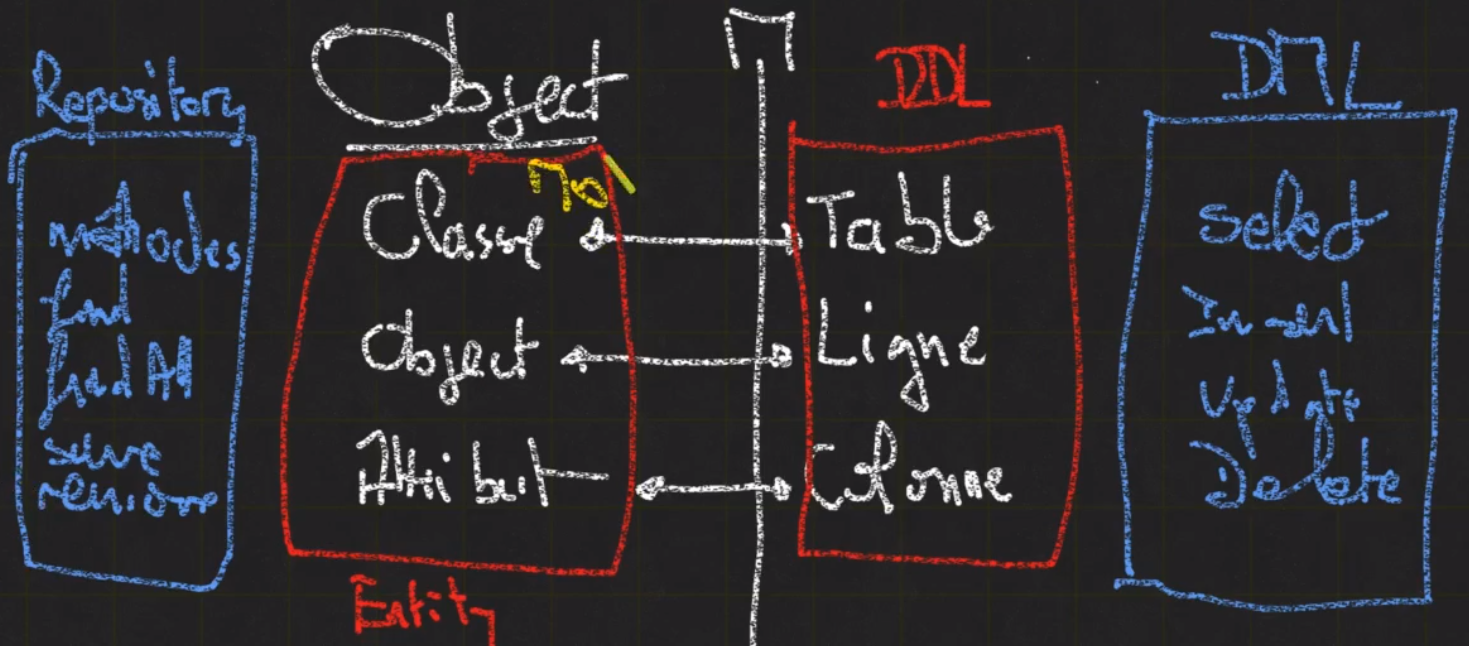 Repository
méthodes
find
find All
save
remove
Object
Classe
Object
Attribut
Entity
DDL
Table
Ligne
Colonne
DML
Select
Insert
Update
Delete